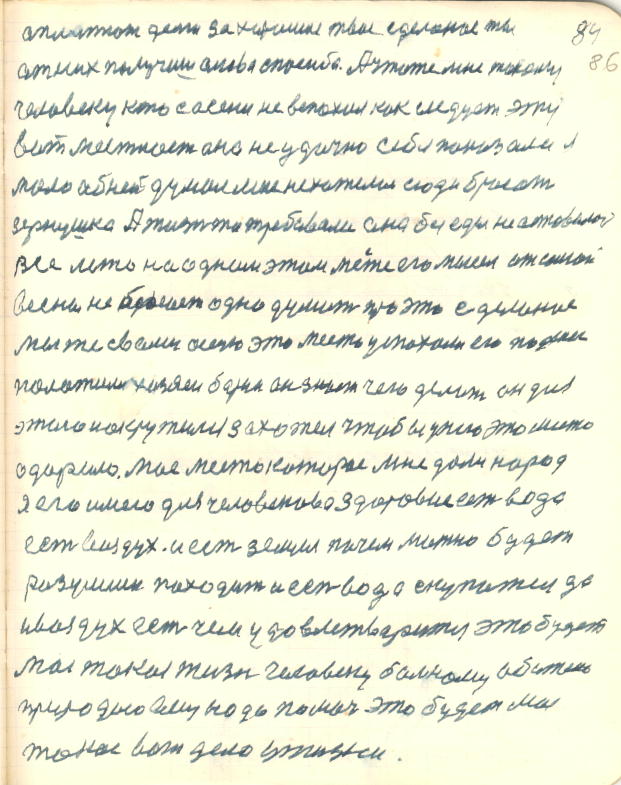 аплатют дети за хорошие твое сделоное ты 84
атних получиш слова спосиба. А што же мне такому 86
человеку кто с осени не вспохал как следует эту
вот местност она не удачно себя показала я
мало обней думал мне не хателся сюды бросат
зернушка А жизн то требавала она без еды не астовалас
все лето на одном этом месте его мысел от самой
весны не бросает одно думает про это сделоное
мы же с вами осеню это место успохали его
палажили хозяен барин он знает чего делат он для
этого и закрутился захател чтобы у него это место
одарило. Мое место которое мне дали народ
я его имею для человекова здоровие ест вода
ест воздух. и ест земля по чем можно будет
разумши походит и ест вода скупатся да
и воздух ест чем удовлетварится это будет
моя такая жизн человеку болному обижено
природою ему нодо памоч это будет мое
такое вот дело в жизни.